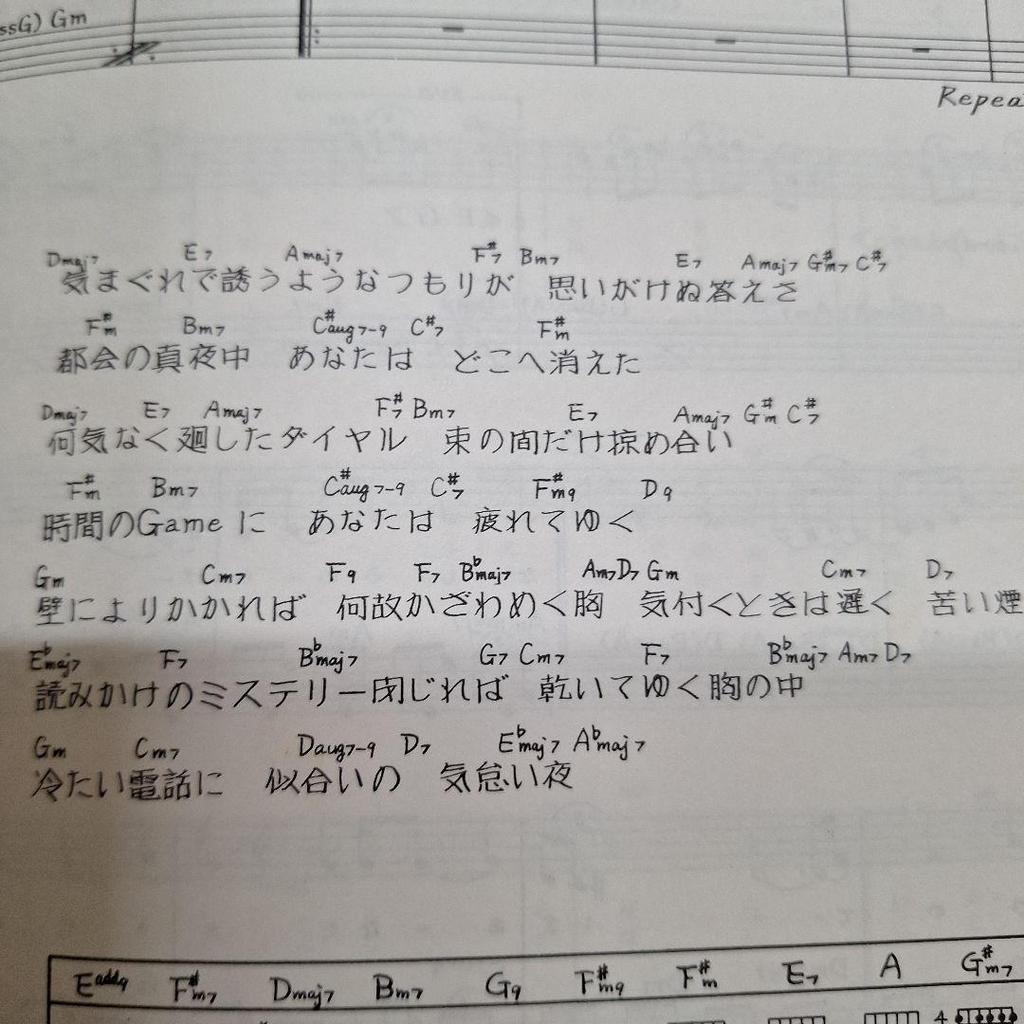 ssG) Gm
Repea
Dmaj7 E7 Amaj7 F#7 Bm7 E7 Amaj7 G#m7 C#7
気まぐれで誘うようなつもりが 思いがけぬ答えさ
F#m Bm7 C#aug7-9 C#7 F#m
都会の真夜中 あなたは どこへ消えた
Dmaj7 E7 Amaj7 F#7 Bm7 E7 Amaj7 G#m C#7
何気なく廻したダイヤル 束の間だけ掠め合い
F#m Bm7 C#aug7-9 C#7 F#m9 D9
時間のGame に あなたは 疲れてゆく
Gm Cm7 F9 F7 B♭maj7 Am7 D7 Gm Cm7 D7
壁によりかかれば 何故かざわめく胸 気付くときは遅く 苦い煙
E♭maj7 F7 B♭maj7 G7 Cm7 F7 B♭maj7 Am7 D7
読みかけのミステリー閉じれば 乾いてゆく胸の中
Gm Cm7 Daug7-9 D7 E♭maj7 A♭maj7
冷たい電話に 似合いの 気怠い夜
Eadd9 F#m7 Dmaj7 Bm7 G9 F#m9 F#m E7 A G#m7
4